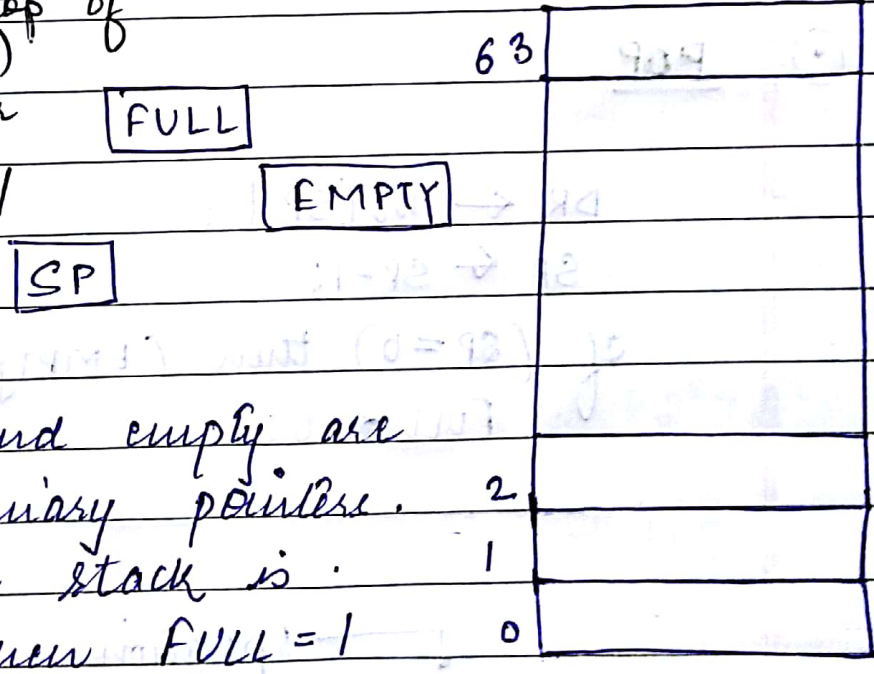 op of
63
FULL
EMPTY
SP
nd empty are
nary pointers. 2
stack is . 1
FULL = 1 0